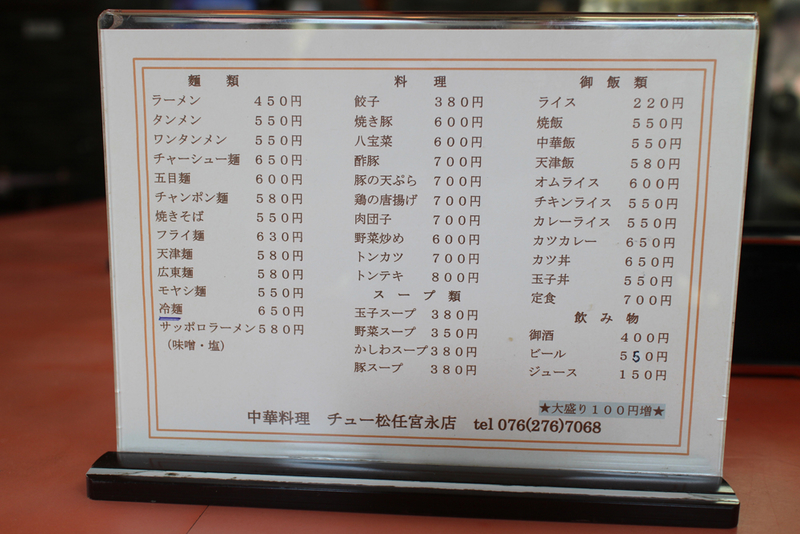 麺　類
ラーメン　４５０円
タンメン　５５０円
ワンタンメン　５５０円
チャーシュー麺　６５０円
五目麺　６００円
チャンポン麺　５８０円
焼きそば　５５０円
フライ麺　６３０円
天津麺　５８０円
広東麺　５８０円
モヤシ麺　５５０円
冷麺　６５０円
サッポロラーメン５８０円
（味噌・塩）
料　理
餃子　３８０円
焼き豚　６００円
八宝菜　６００円
酢豚　７００円
豚の天ぷら　７００円
鶏の唐揚げ　７００円
肉団子　７００円
野菜炒め　６００円
トンカツ　７００円
トンテキ　８００円
スープ類
玉子スープ　３８０円
野菜スープ　３５０円
かしわスープ３８０円
豚スープ　３８０円
御飯類
ライス　２２０円
焼飯　５５０円
中華飯　５５０円
天津飯　５８０円
オムライス　６００円
チキンライス　５５０円
カレーライス　５５０円
カツカレー　６５０円
カツ丼　６５０円
玉子丼　５５０円
定食　７００円
飲み物
御酒　４００円
ビール　５５０円
ジュース　１５０円
★大盛り１００円増★
中華料理　チュー松任宮永店　tel 076(276)7068